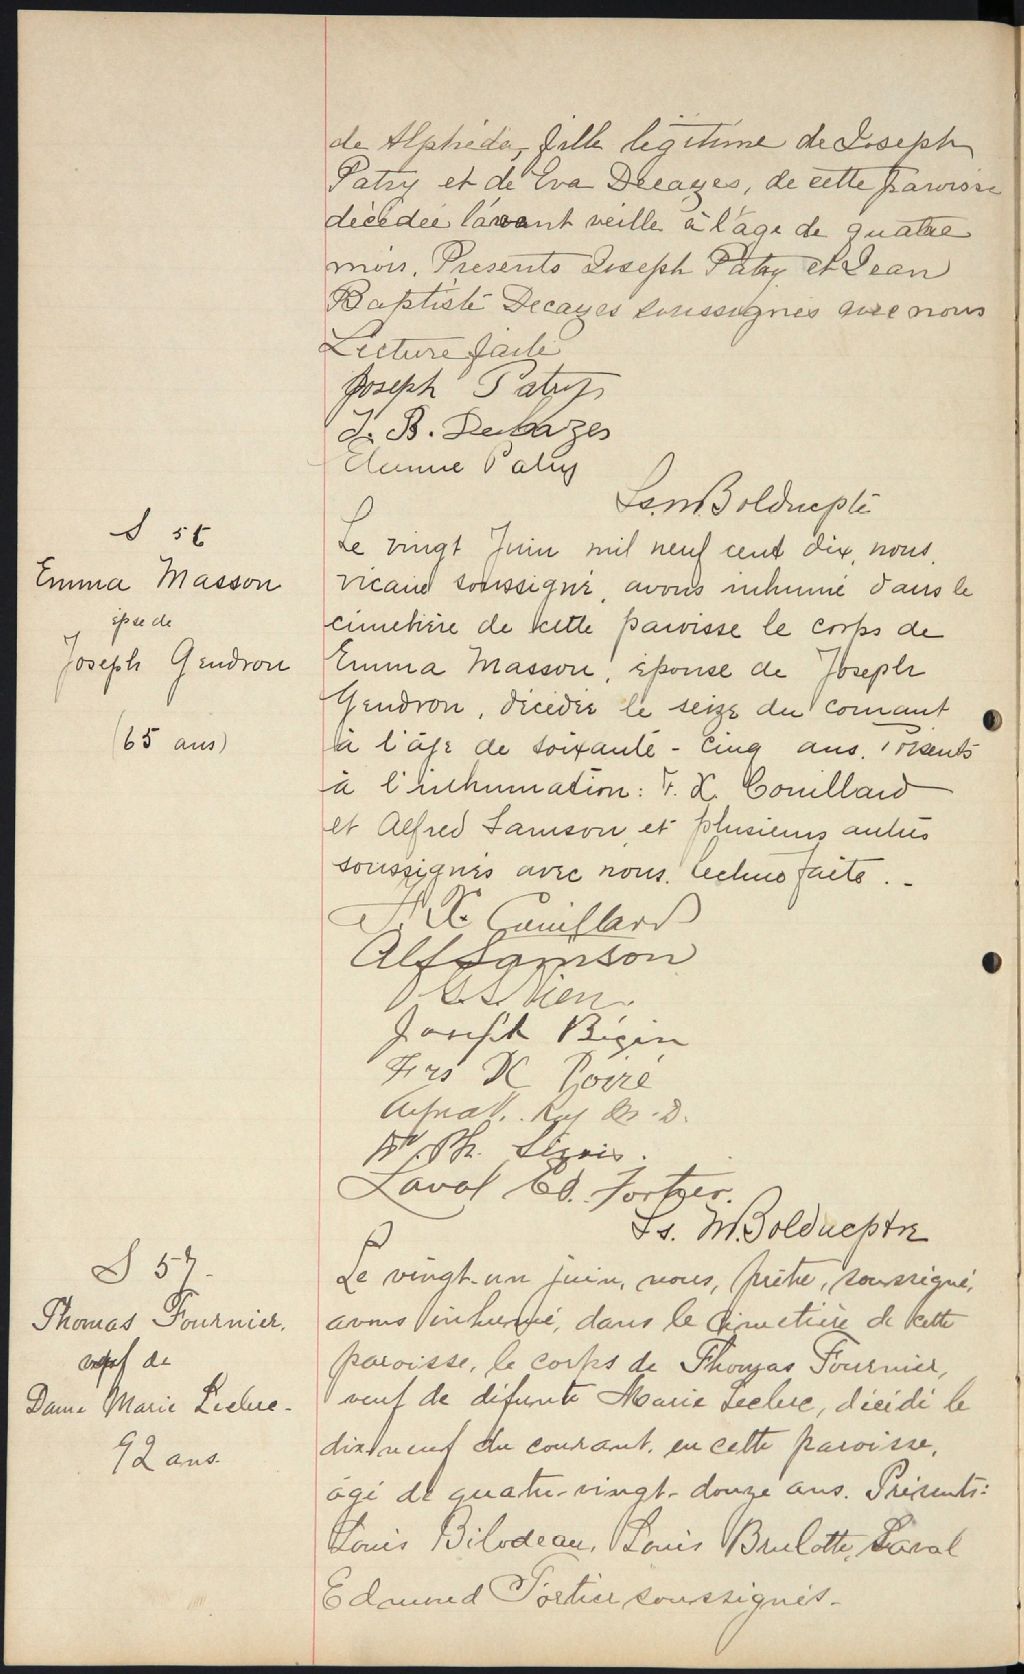 de Alphéda, fille légitime de Joseph
Patry et de Eva Decazes, de cette paroisse
décédée l'avant veille à l'âge de quatre
mois. Présents Joseph Patry et Jean
Baptiste Decazes soussignés avec nous
Lecture faite
Joseph Patry
J. B. Decazes
Etienne Patry
Ls. M. Bolduc ptre
S 56
Emma Masson
épse de
Joseph Gendron
(65 ans)
Le vingt Juin mil neuf cent dix, nous,
vicaire soussigné, avons inhumé dans le
cimetière de cette paroisse le corps de
Emma Masson, épouse de Joseph
Gendron, décédée le seize du courant
à l'âge de soixante-cinq ans. Présents
à l'inhumation: F. X. Couillard
et Alfred Samson et plusieurs autres
soussignés avec nous. Lecture faite. -
F. X. Couillard
Alf Samson
Vien
Joseph Bégin
Frs X Poiré
Roy M. D.
Laval Ed. Fortier.
Ls. M. Bolduc ptre
S 57 -
Thomas Fournier.
veuf de
Dame Marie Leclerc -
92 ans
Le vingt-un juin, nous, prêtre, soussigné,
avons inhumé, dans le cimetière de cette
paroisse, le corps de Thomas Fournier,
veuf de défunte Marie Leclerc, décédé le
dix-neuf du courant, en cette paroisse,
âgé de quatre-vingt-douze ans. Présents:
Louis Bilodeau, Louis Brulotte, Laval
Edmund Fortier soussignés -